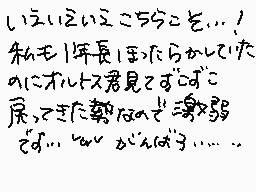 いえいえいえこちらこそ…!
私も1年長ほったらかしていた
のにオルトス君見てずこずこ
戻ってきた勢なので激弱
です…'ω' がんばろ……